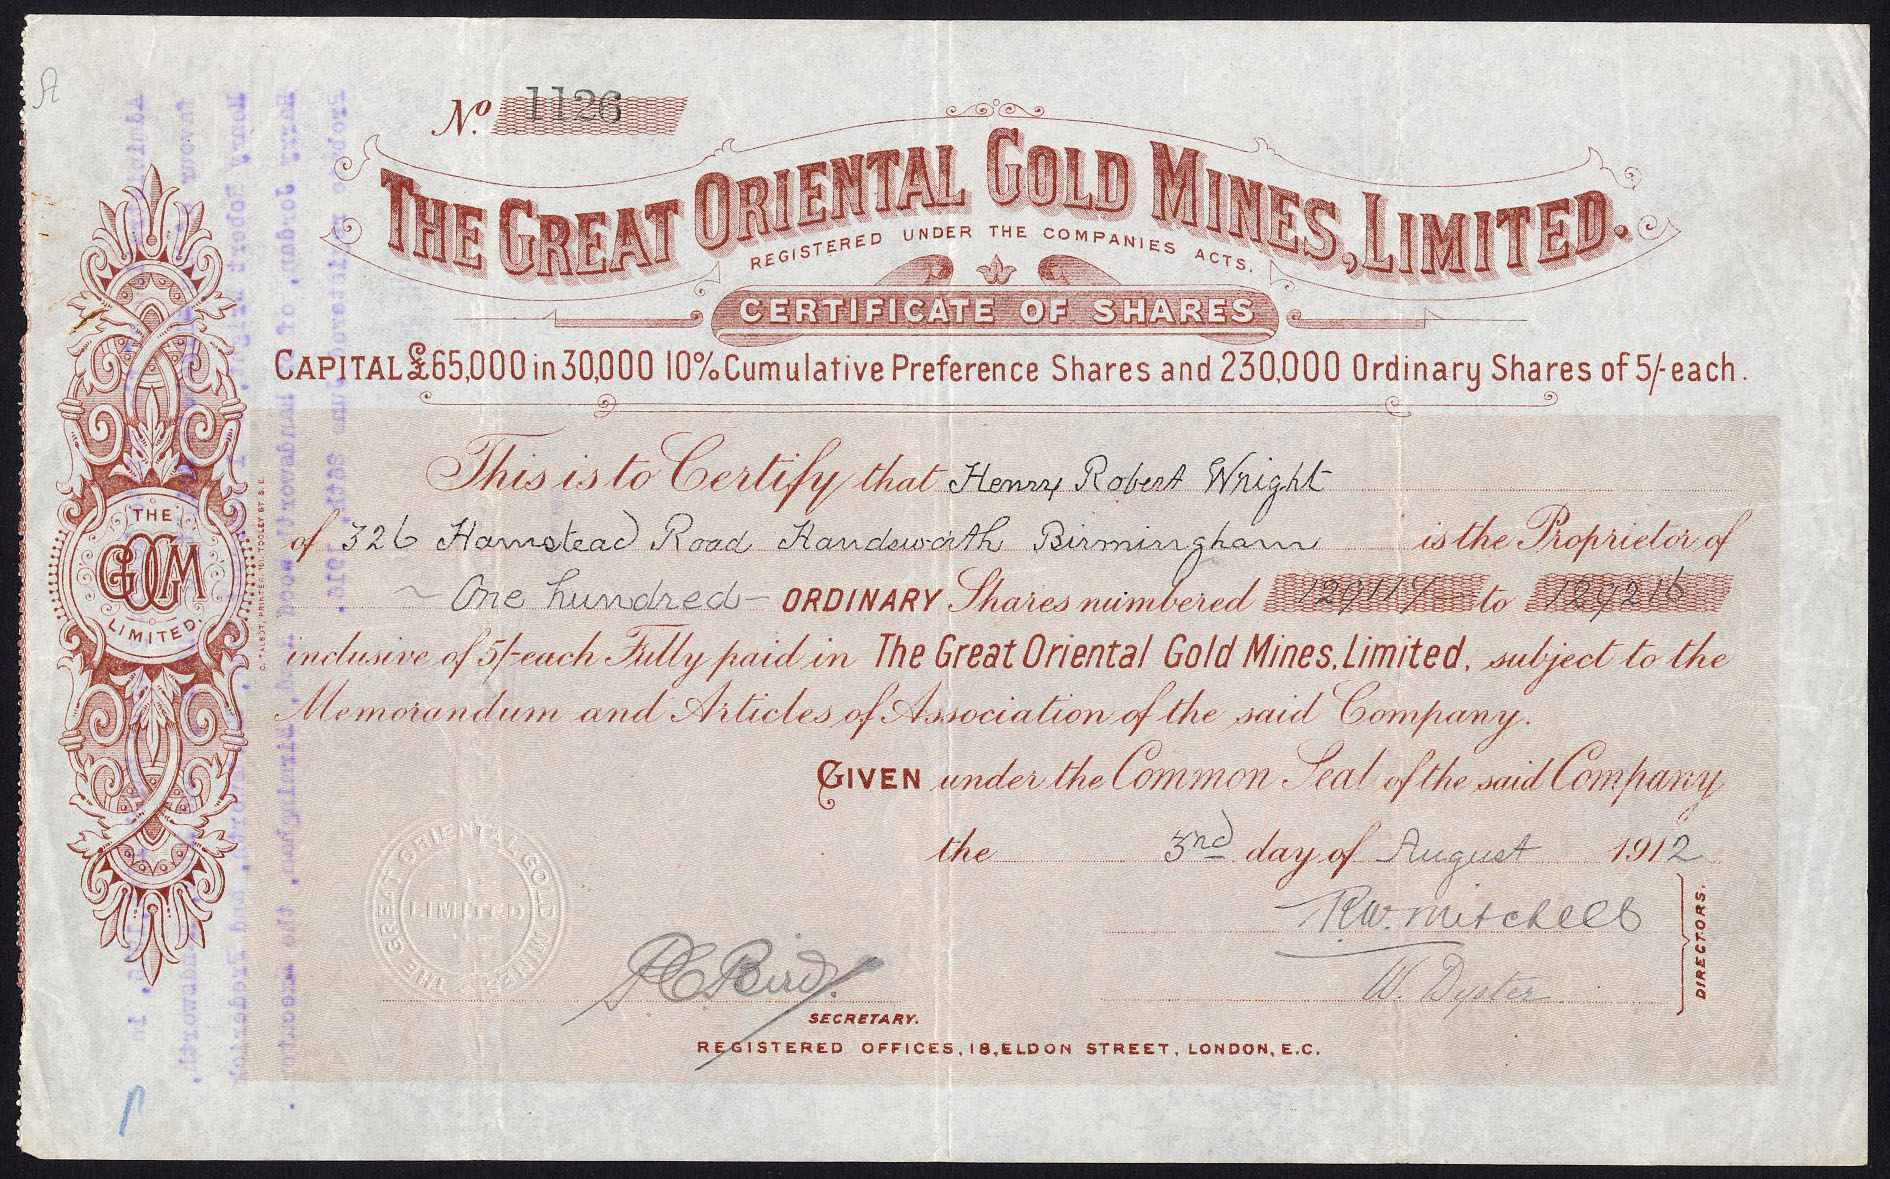 A
No. 1126
THE GREAT ORIENTAL GOLD MINES, LIMITED.
REGISTERED UNDER THE COMPANIES ACTS.
CERTIFICATE OF SHARES
CAPITAL £65,000 in 30,000 10% Cumulative Preference Shares and 230,000 Ordinary Shares of 5/- each.
This is to Certify that Henry Robert Wright
of 326 Hamstead Road Handsworth Birmingham is the Proprietor of
~ One hundred - ORDINARY Shares numbered 129117 to 129216
inclusive of 5/- each Fully paid in The Great Oriental Gold Mines, Limited, subject to the
Memorandum and Articles of Association of the said Company.
GIVEN under the Common Seal of the said Company
the 3rd day of August 1912
R.W. Mitchell
W. Dyster
DIRECTORS.
Bird
SECRETARY.
REGISTERED OFFICES, 18, ELDON STREET, LONDON, E.C.
THE
GOGM
LIMITED.
C. TALBOT, PRINTER, 101, TOOLEY ST. S.E.
THE GREAT ORIENTAL GOLD MINES
LIMITED